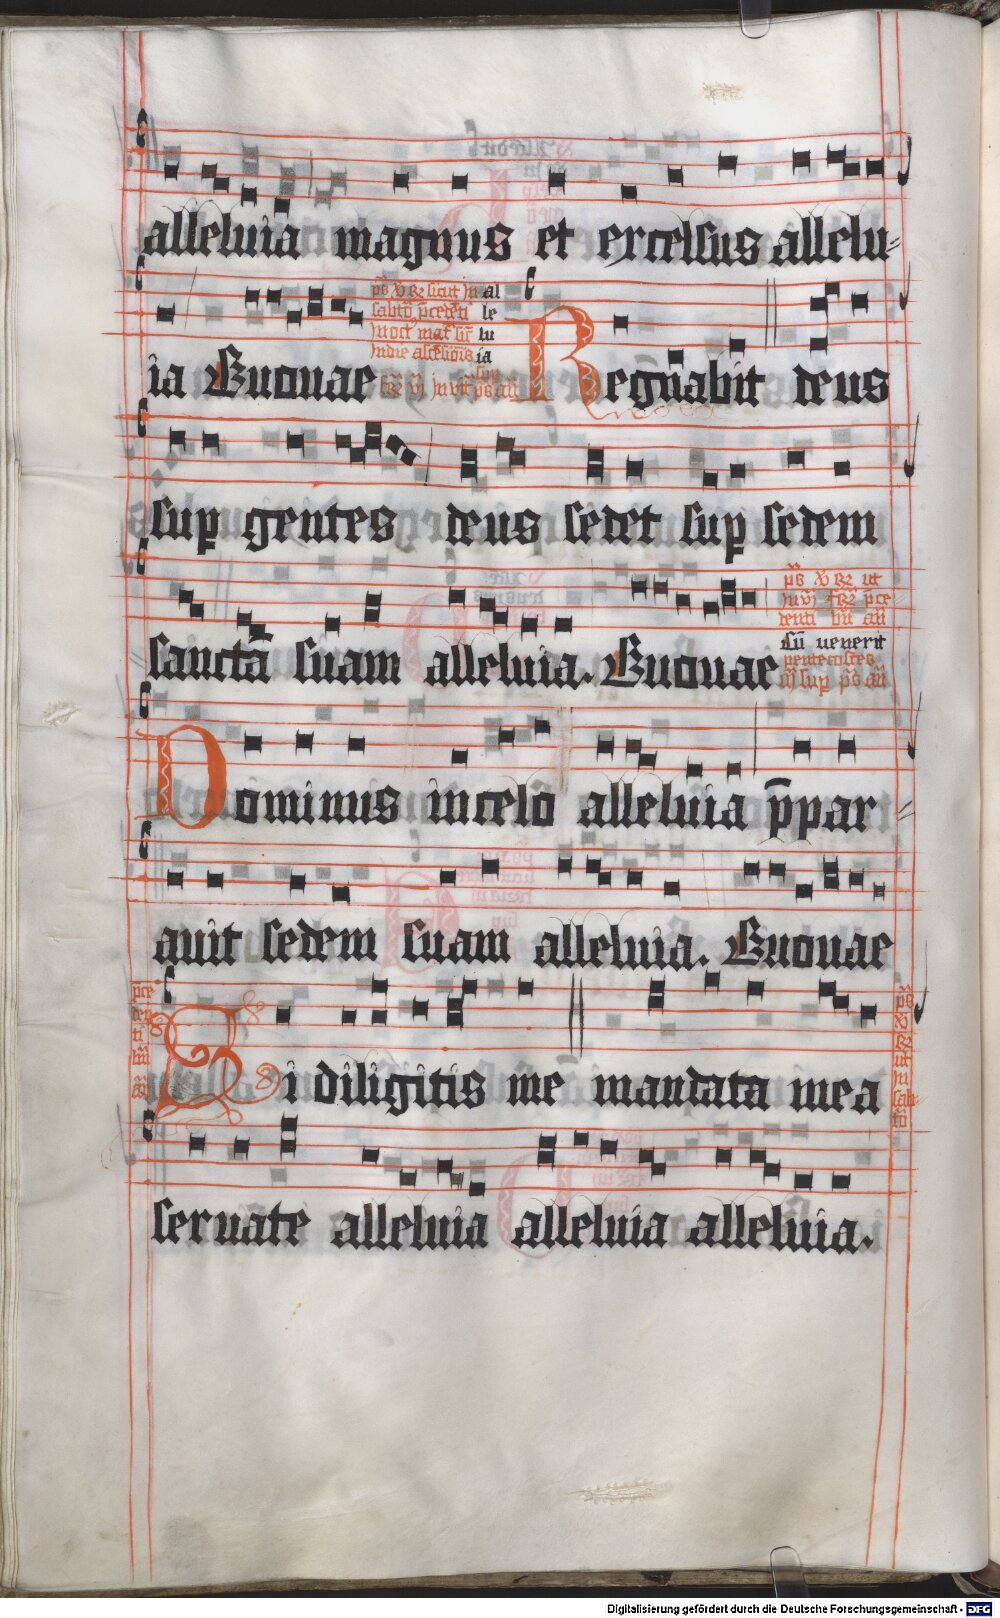 alleluia magnus et excelsus allelu-
ia Euouae
ps V R sicut in
al
le
lu
ia
Regnabit deus
sup gentes deus sedet sup sedem
sanctā suam alleluia. Euouae
ps V R ut
Cū venerit
pentecostes
Dominus in celo alleluia p̄par
auit sedem suam alleluia. Euouae
Si diligitis me mandata mea
seruate alleluia alleluia alleluia.
Digitalisierung gefördert durch die Deutsche Forschungsgemeinschaft - DFG